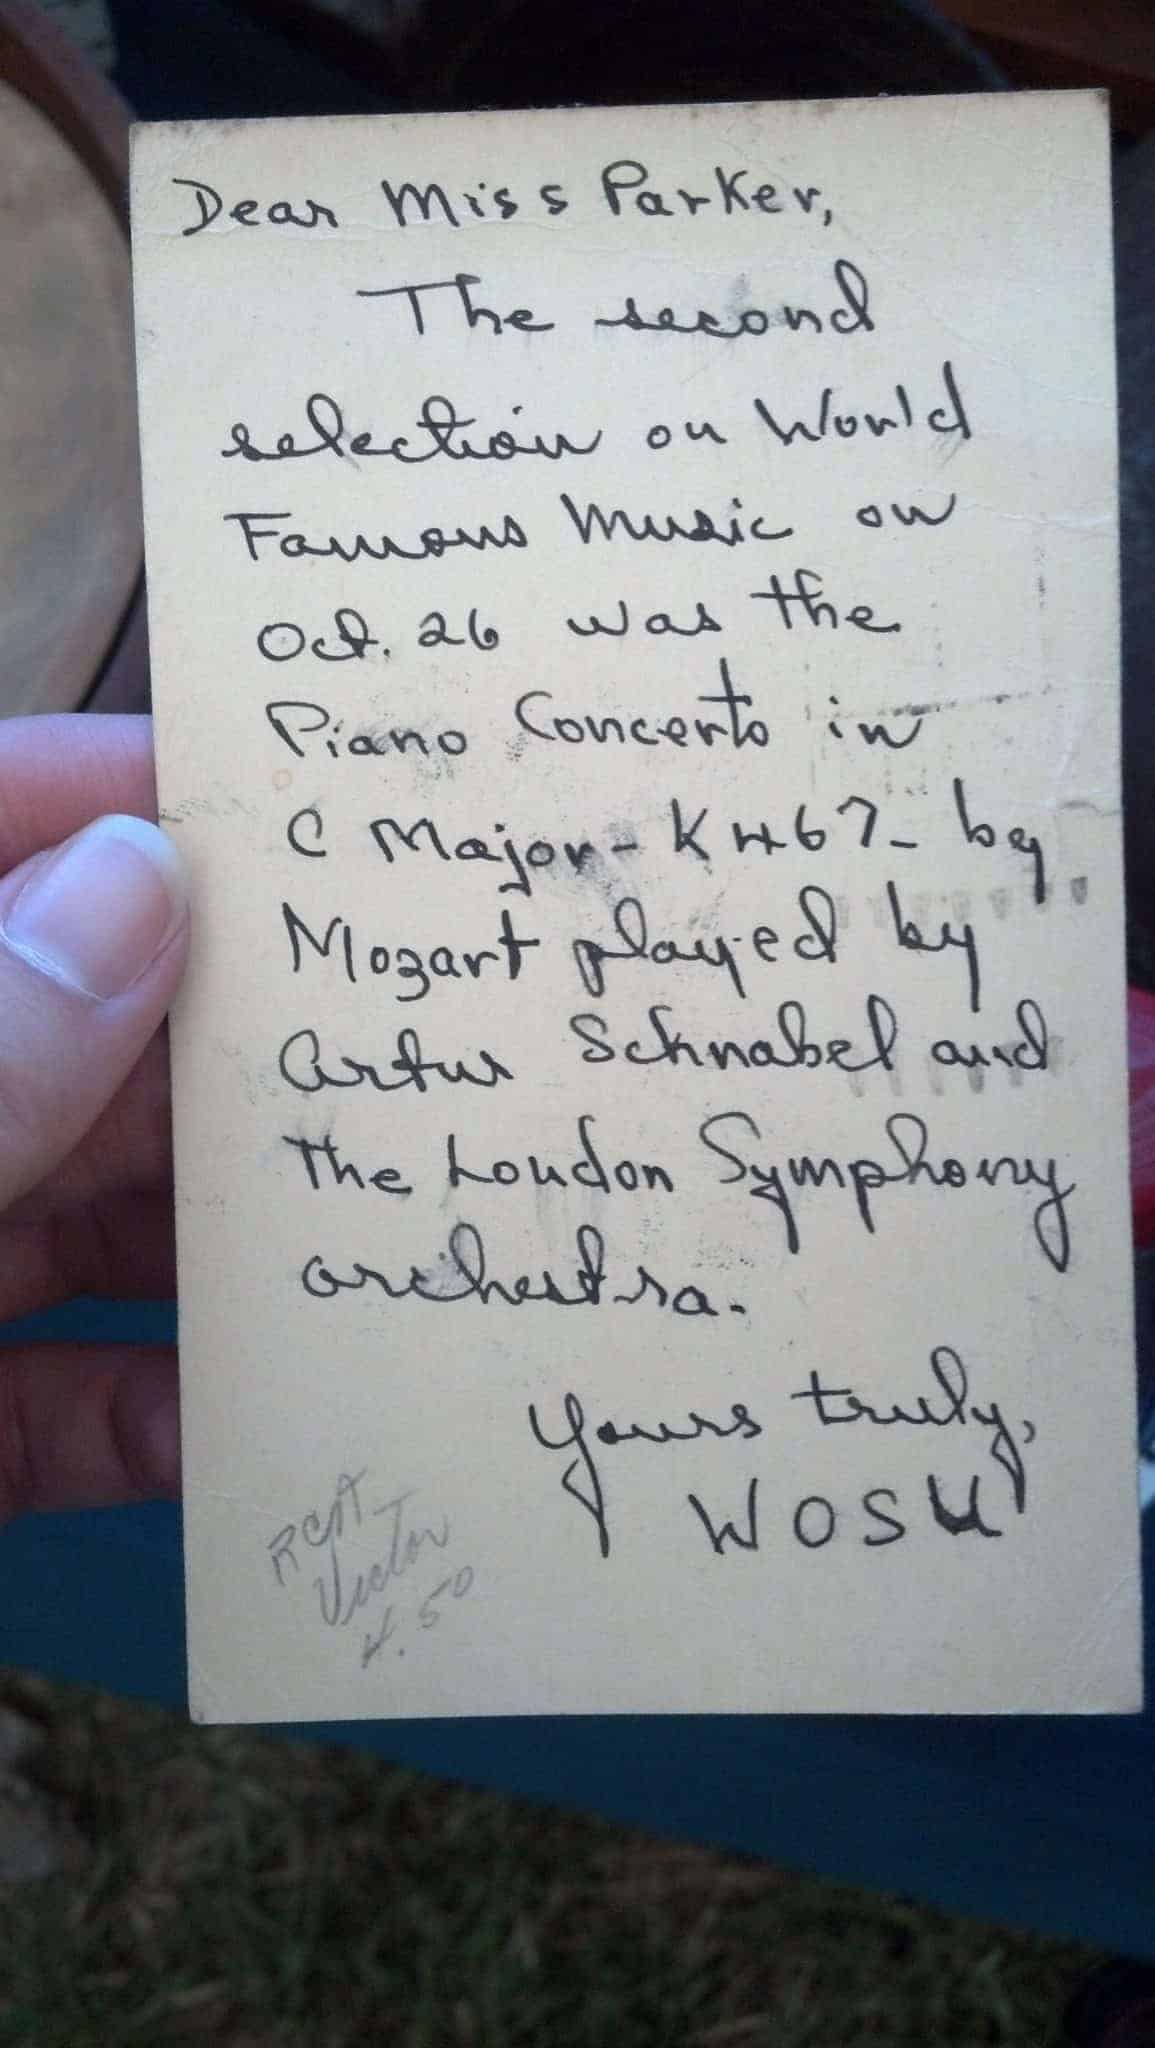 Dear Miss Parker,
The second
selection on World
Famous Music on
Oct. 26 was the
Piano Concerto in
C Major - K 467 - by
Mozart played by
Artur Schnabel and
the London Symphony
orchestra.
Yours truly,
WOSU
RCA
Victor
4.50